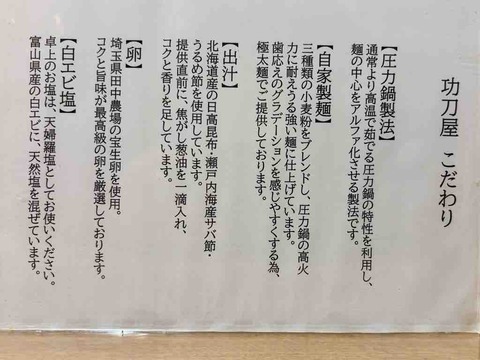 功刀屋 こだわり
【圧力鍋製法】
通常より高温で茹でる圧力鍋の特性を利用し、
麺の中心をアルファ化させる製法です。
【自家製麺】
三種類の小麦粉をブレンドし、圧力鍋の高火
力に耐えうる強い麺に仕上げています。
歯応えのグラデーションを感じやすくする為、
極太麺でご提供しております。
【出汁】
北海道産の日高昆布・瀬戸内海産サバ節・
うるめ節を使用しています。
提供直前に、焦がし葱油を一滴入れ、
コクと香りを足しています。
【卵】
埼玉県田中農場の宝生卵を使用。
コクと旨味が最高級の卵を厳選しております。
【白エビ塩】
卓上のお塩は、天婦羅塩としてお使いください。
富山県産の白エビに、天然塩を混ぜています。